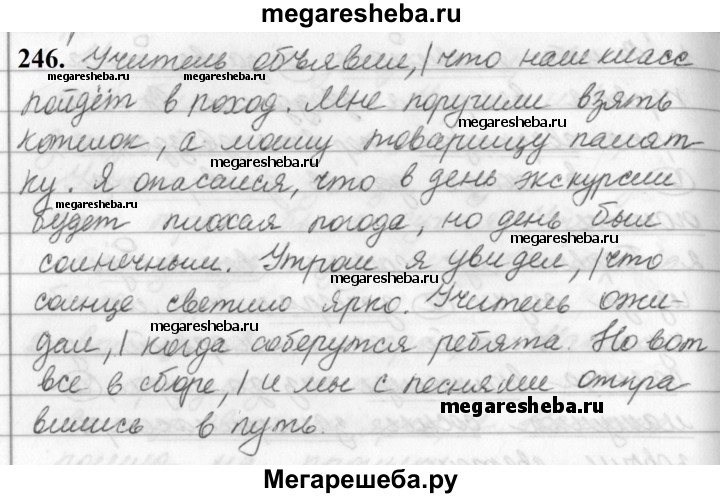 megaresheba.ru
246. Учитель объявил, | что наш класс
megaresheba.ru megaresheba.ru
пойдёт в поход. Мне поручили взять
megaresheba.ru
котелок, а моему товарищу палат-
megaresheba.ru
ку. Я опасался, что в день экскурсии
megaresheba.ru
будет плохая погода, но день был
megaresheba.ru
солнечным. Утром я увидел, | что
megaresheba.ru
солнце светило ярко. Учитель ожи-
megaresheba.ru
дал, | когда соберутся ребята. Но вот
megaresheba.ru
все в сборе, | и мы с песнями отпра
megaresheba.ru
вились в путь.
Мегарешеба.ру